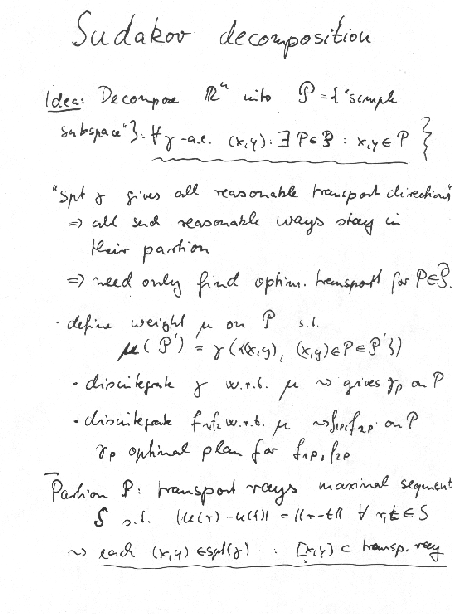 Sudakov decomposition
Idea: Decompose ℝⁿ into 𝒫 = {"simple
subspace"}. ∀ γ-a.e. (x,y): ∃ P∈𝒫 : x,y ∈ P }
"spt γ gives all reasonable transport directions"
⇒ all such reasonable ways stay in
their partion
⇒ need only find optim. transport for P∈𝒫.
· define weight μ on 𝒫 s.t.
μ(𝒫') = γ({(x,y), (x,y)∈P∈𝒫'})
· disintegrate γ w.r.t. μ ⇝ gives γ_P on P
· disintegrate f₁,f₂ w.r.t. μ ⇝ f₁P, f₂P on P
γ_P optimal plan for f₁P, f₂P
Partion 𝒫: transport rays maximal segment
S s.t. |u(r)-u(t)| = |r-t| ∀ r,t ∈ S
⇝ each (x,y) ∈ spt(γ) : [x,y] ⊂ transp. ray